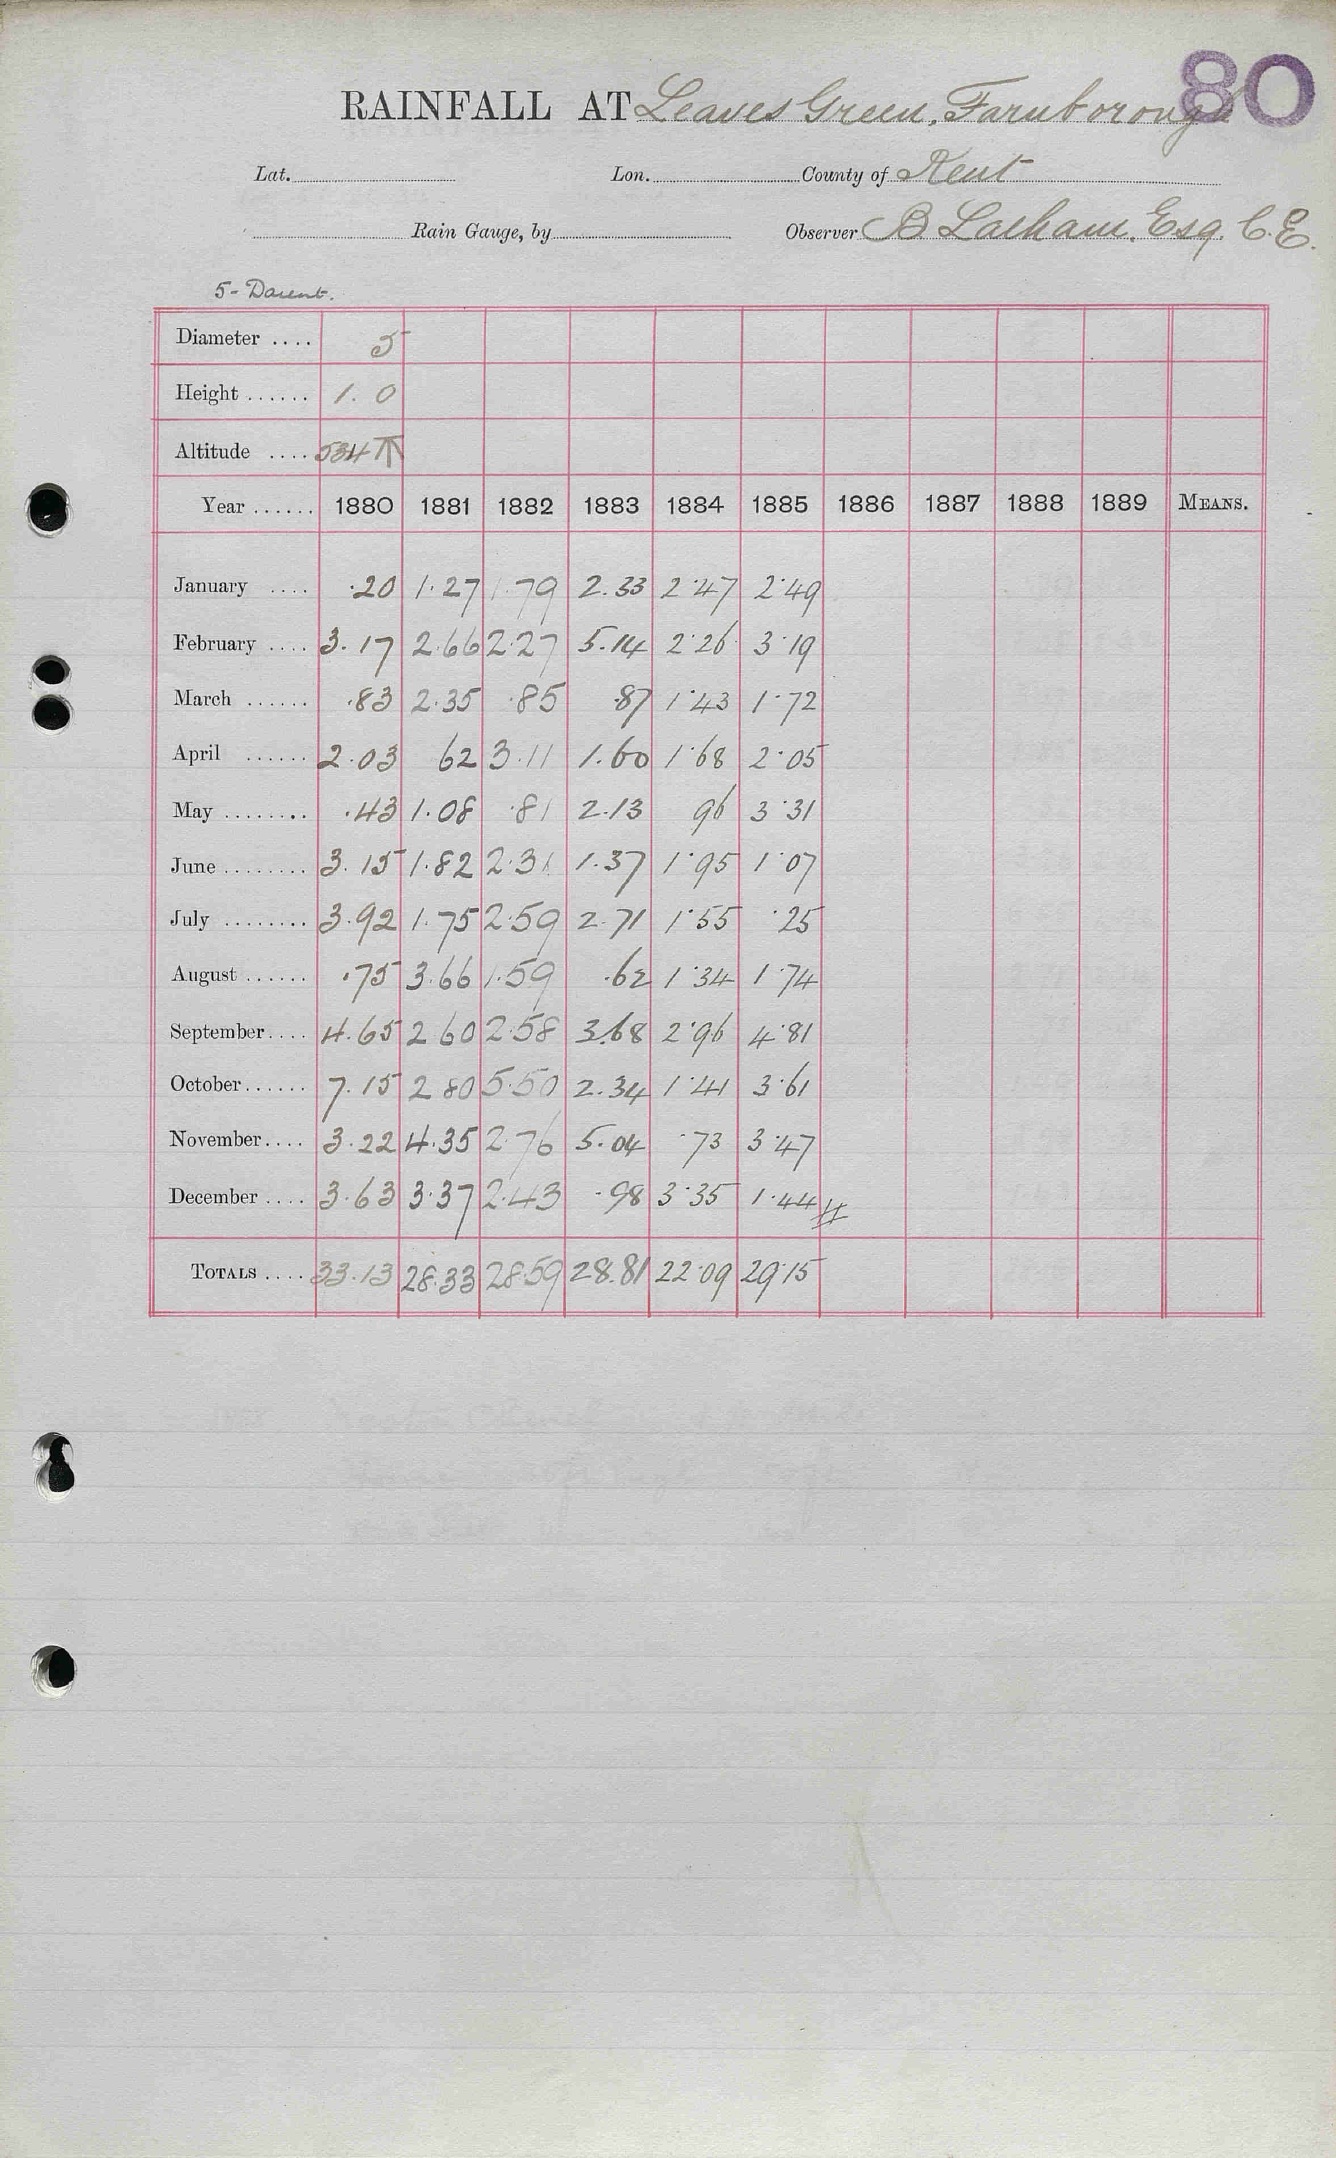 80
RAINFALL AT Leaves Green, Farnborough
Lat. Lon. County of Kent
Rain Gauge, by Observer B Latham, Esq. C.E.
5-Darent.
Diameter .... 5
Height ...... 1. 0
Altitude .... 534 T
Year ...... 1880 1881 1882 1883 1884 1885 1886 1887 1888 1889 MEANS.
January .... .20 1.27 1.79 2.33 2.47 2.49
February .... 3.17 2.66 2.27 5.14 2.26 3.19
March ...... .83 2.35 .85 .87 1.43 1.72
April ...... 2.03 62 3.11 1.60 1.68 2.05
May ........ .43 1.08 .81 2.13 96 3.31
June ........ 3.15 1.82 2.31 1.37 1.95 1.07
July ........ 3.92 1.75 2.59 2.71 1.55 .25
August ...... .75 3.66 1.59 .62 1.34 1.74
September.... 4.65 2 60 2.58 3.68 2.96 4.81
October...... 7.15 2 80 5.50 2.34 1.41 3.61
November.... 3.22 4.35 2.76 5.04 .73 3.47
December .... 3.63 3.37 2.43 .98 3.35 1.44
TOTALS .... 33.13 28.33 28.59 28.81 22.09 29.15